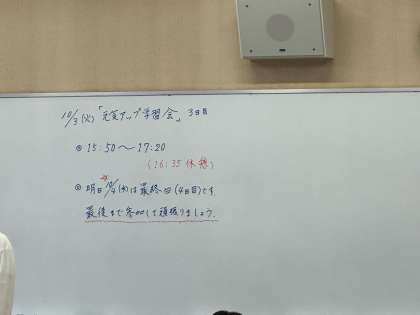 10/3(火)「元気アップ学習会」3日目
◎ 15:50〜17:20
(16:35 休憩)
◎ 明日→10/4(水)は最終回(4日目)です。
最後まで参加して頑張りましょう。